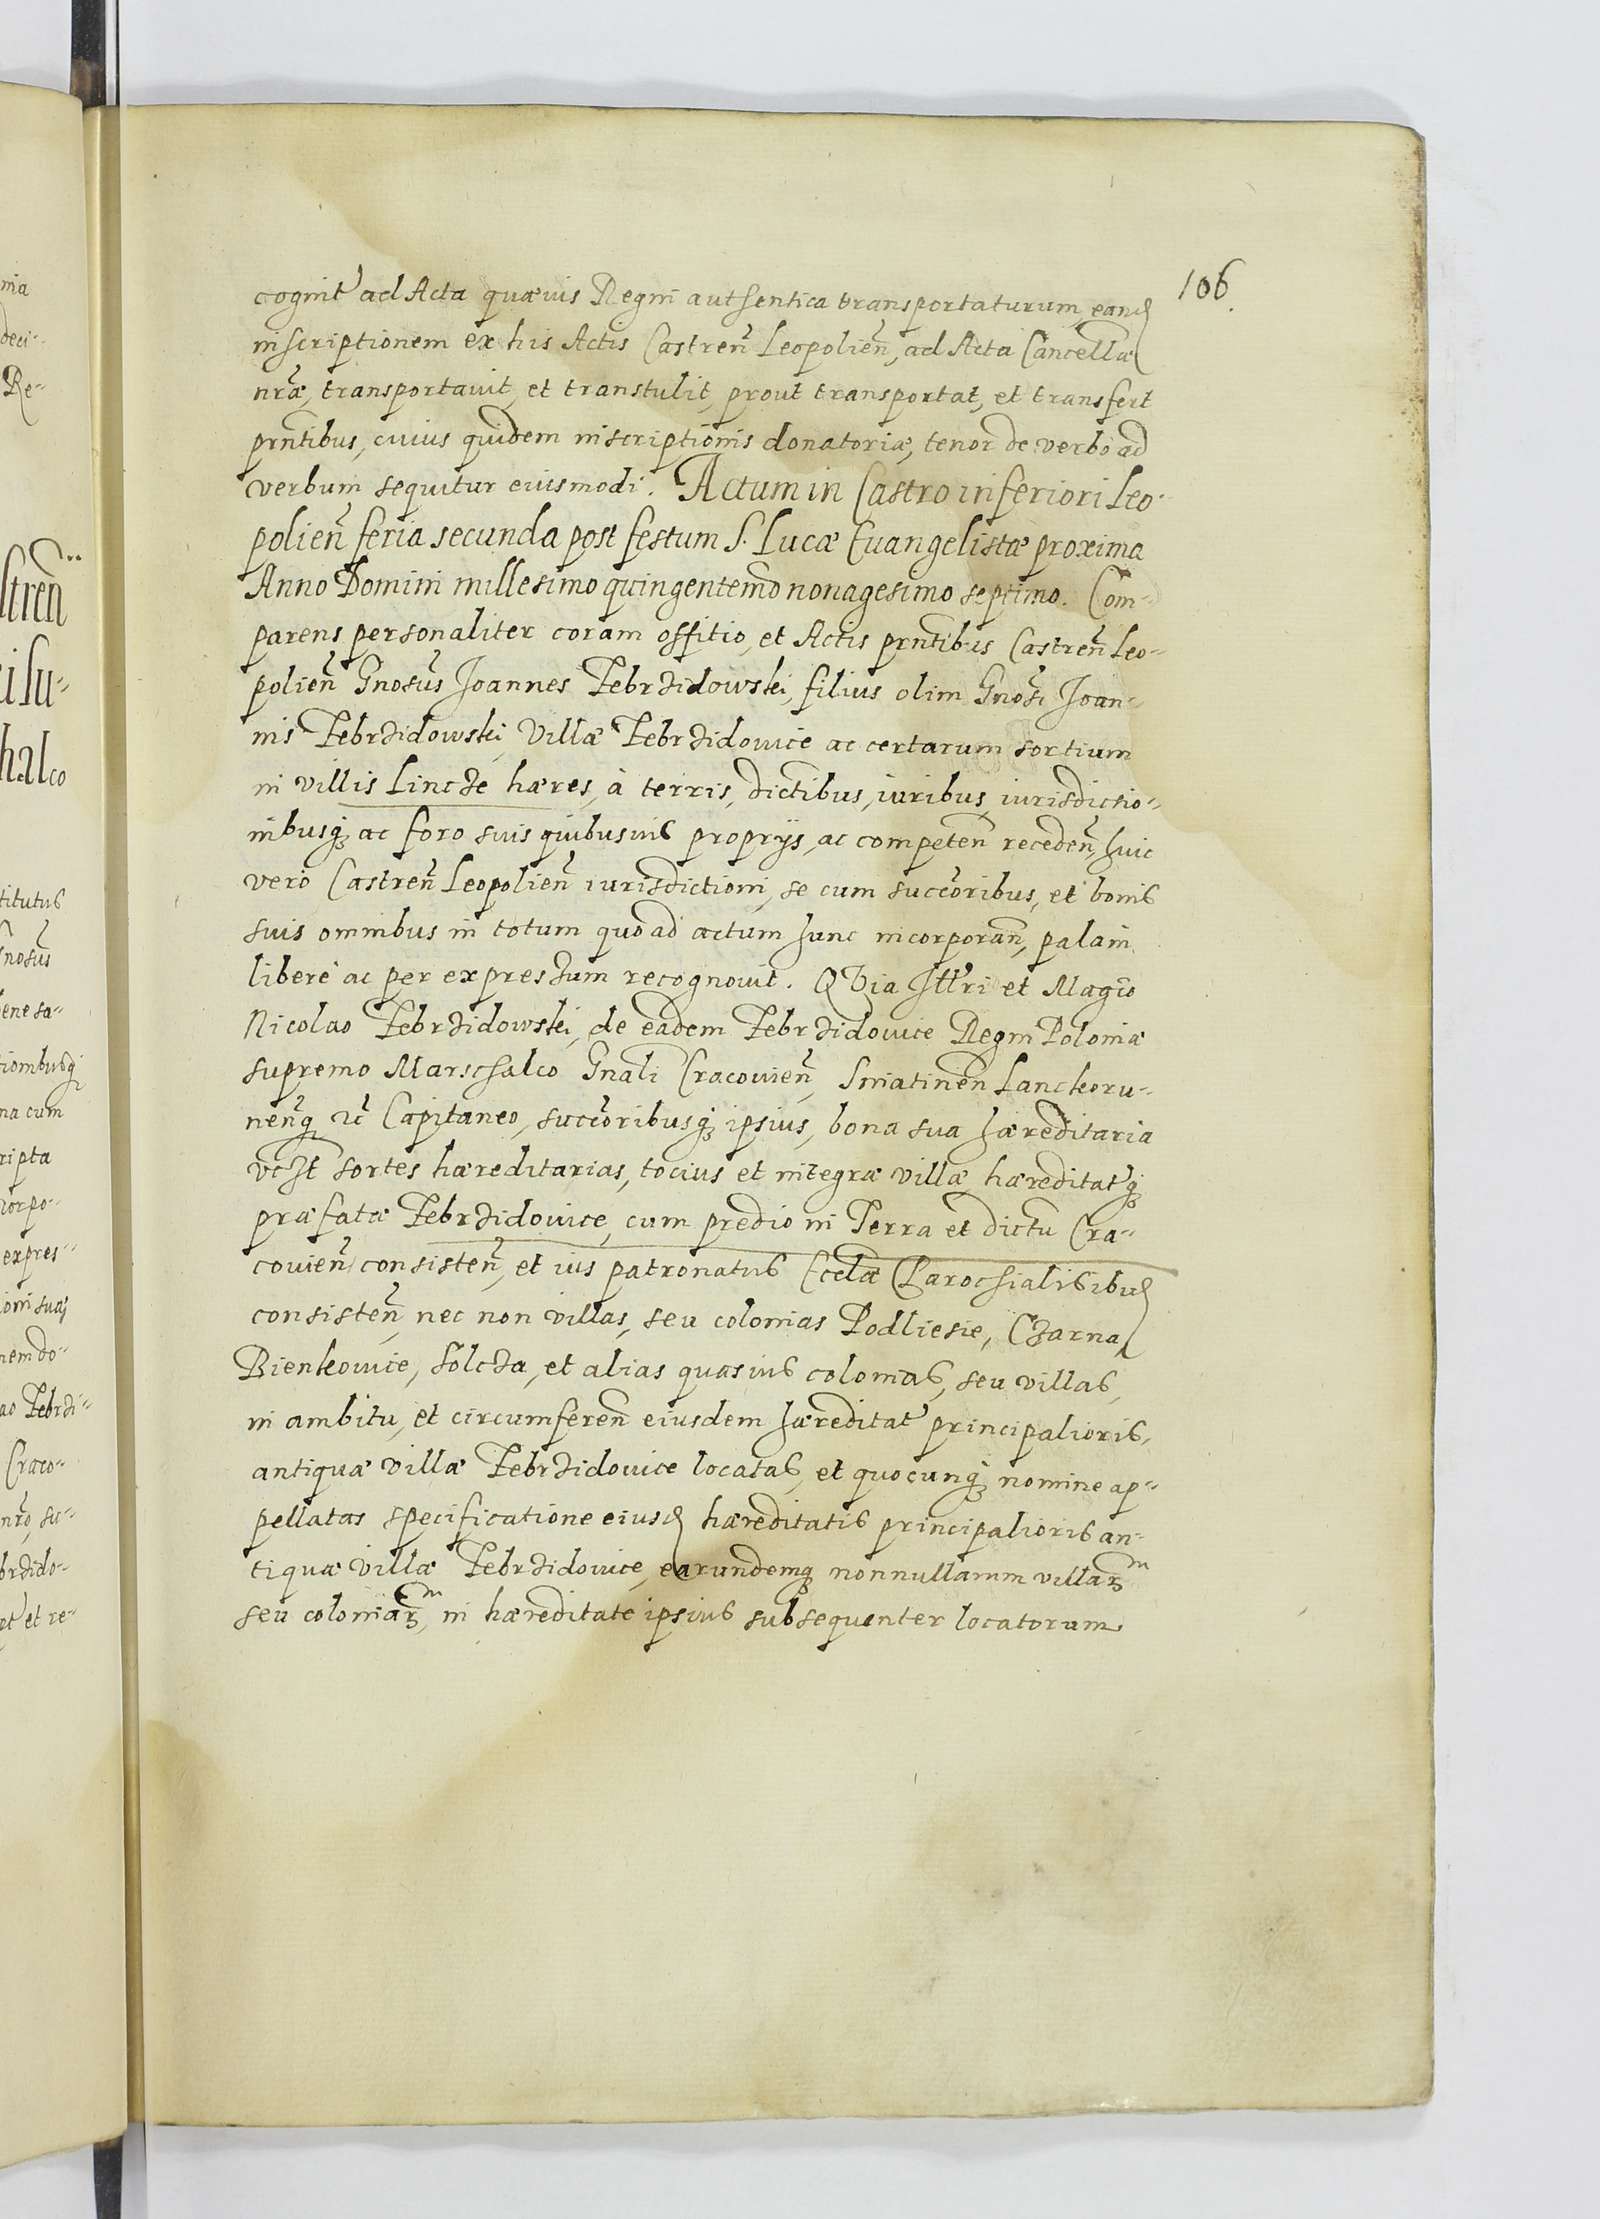 106.
cognit ad Acta quævis Regni authentica transportaturum, eand
inscriptionem ex his Actis Castren Leopolien, ad Acta Cancellæ
nræ, transportavit, et transtulit, prout transportat, et transfert
prntibus, cuius quidem inscriptionis donatoriæ, tenor de verbo ad
verbum sequitur eiusmodi. Actum in Castro inferiori Leo-
polien feria secunda post festum S. Lucæ Evangelistæ proxima
Anno Domini millesimo quingentemo nonagesimo septimo. Com-
parens personaliter coram offitio, et Actis prntibus Castren Leo-
polien Gnosus Joannes Zebrzidowski, filius olim Gnosi Joan-
nis Zebrzidowski, Villæ Zebrzidovice ac certarum sortium
in villis Lincze hæres, à terris, dictibus, iuribus, iurisdictio-
nibusq ac foro suis quibusvis proprijs, ac competen receden, huic
vero Castren Leopolien iurisdictioni, se cum succoribus, et bonis
suis omnibus in totum quo ad actum hunc incorporan, palam
libere ac per expressum recognovit. QVia Illri et Magco
Nicolao Zebrzidowski, de eadem Zebrzidovice Regni Poloniæ
supremo Marschalco Gnali Cracovien, Sniatinen Lanckoru-
nenq zc Capitaneo, succoribusq ipsius, bona sua hæreditaria
vtst sortes hæreditarias, tocius et integræ villæ hæreditatq
præfatæ Zebrzidovice, cum predio in Terra et dictu Cra-
covien consisten, et ius patronatus Ecclæ Parochialis ibid
consisten, nec non villas, seu colonias Podliesie, Czarna
Bienkovice, Solcza, et alias quasvis colonias, seu villas,
in ambitu, et circumferen eiusdem hæreditat principalioris,
antiquæ villæ Zebrzidovice locatas, et quocunq nomine ap-
pellatas specificatione eiusd hæreditatis principalioris an-
tiquæ villæ Zebrzidovice, earundemq nonnullarum villarm
seu coloniarm, in hæreditate ipsius subsequenter locatorum